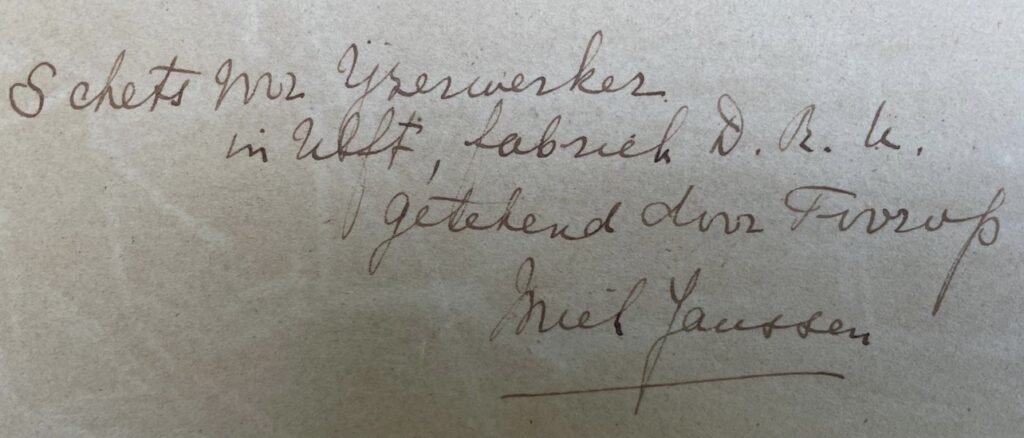 Schets voor Yzerwerker
in Ulft, fabriek D. R. U.
getekend door Toorop
Miek Janssen